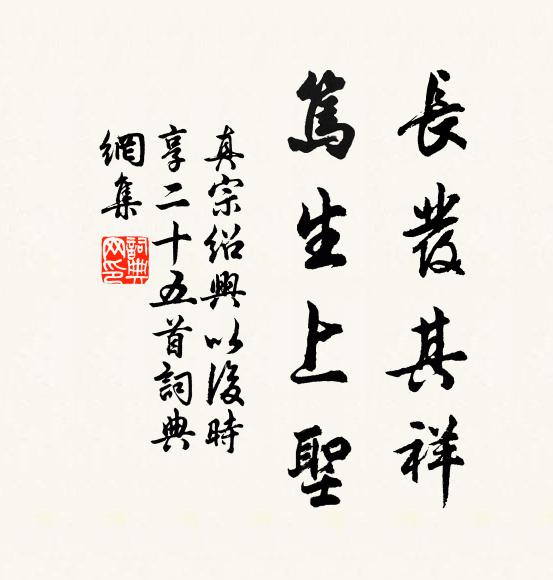 長發其祥
篤生上聖
真宗紹興以後時
享二十五首詞典
網集
詞典網印